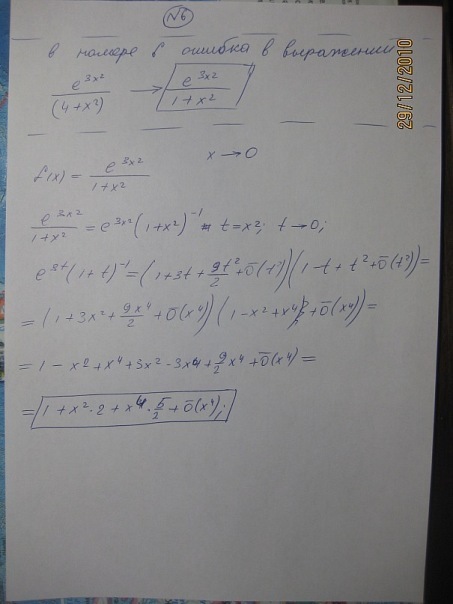 №6
в номере 6 ошибка в выражении
e^{3x²}/(4+x²) → e^{3x²}/(1+x²)
x → 0
f(x) = e^{3x²}/(1+x²)
e^{3x²}/(1+x²) = e^{3x²}(1+x²)^{-1} t=x²; t→0;
e^{3t}(1+t)^{-1} = (1+3t+9t²/2+ō(t²))(1-t+t²+ō(t²)) =
= (1+3x²+9x⁴/2+ō(x⁴))(1-x²+x⁴+ō(x⁴)) =
= 1-x²+x⁴+3x²-3x⁴+9/2x⁴+ō(x⁴) =
= 1+x²·2+x⁴·5/2+ō(x⁴);
29/12/2010